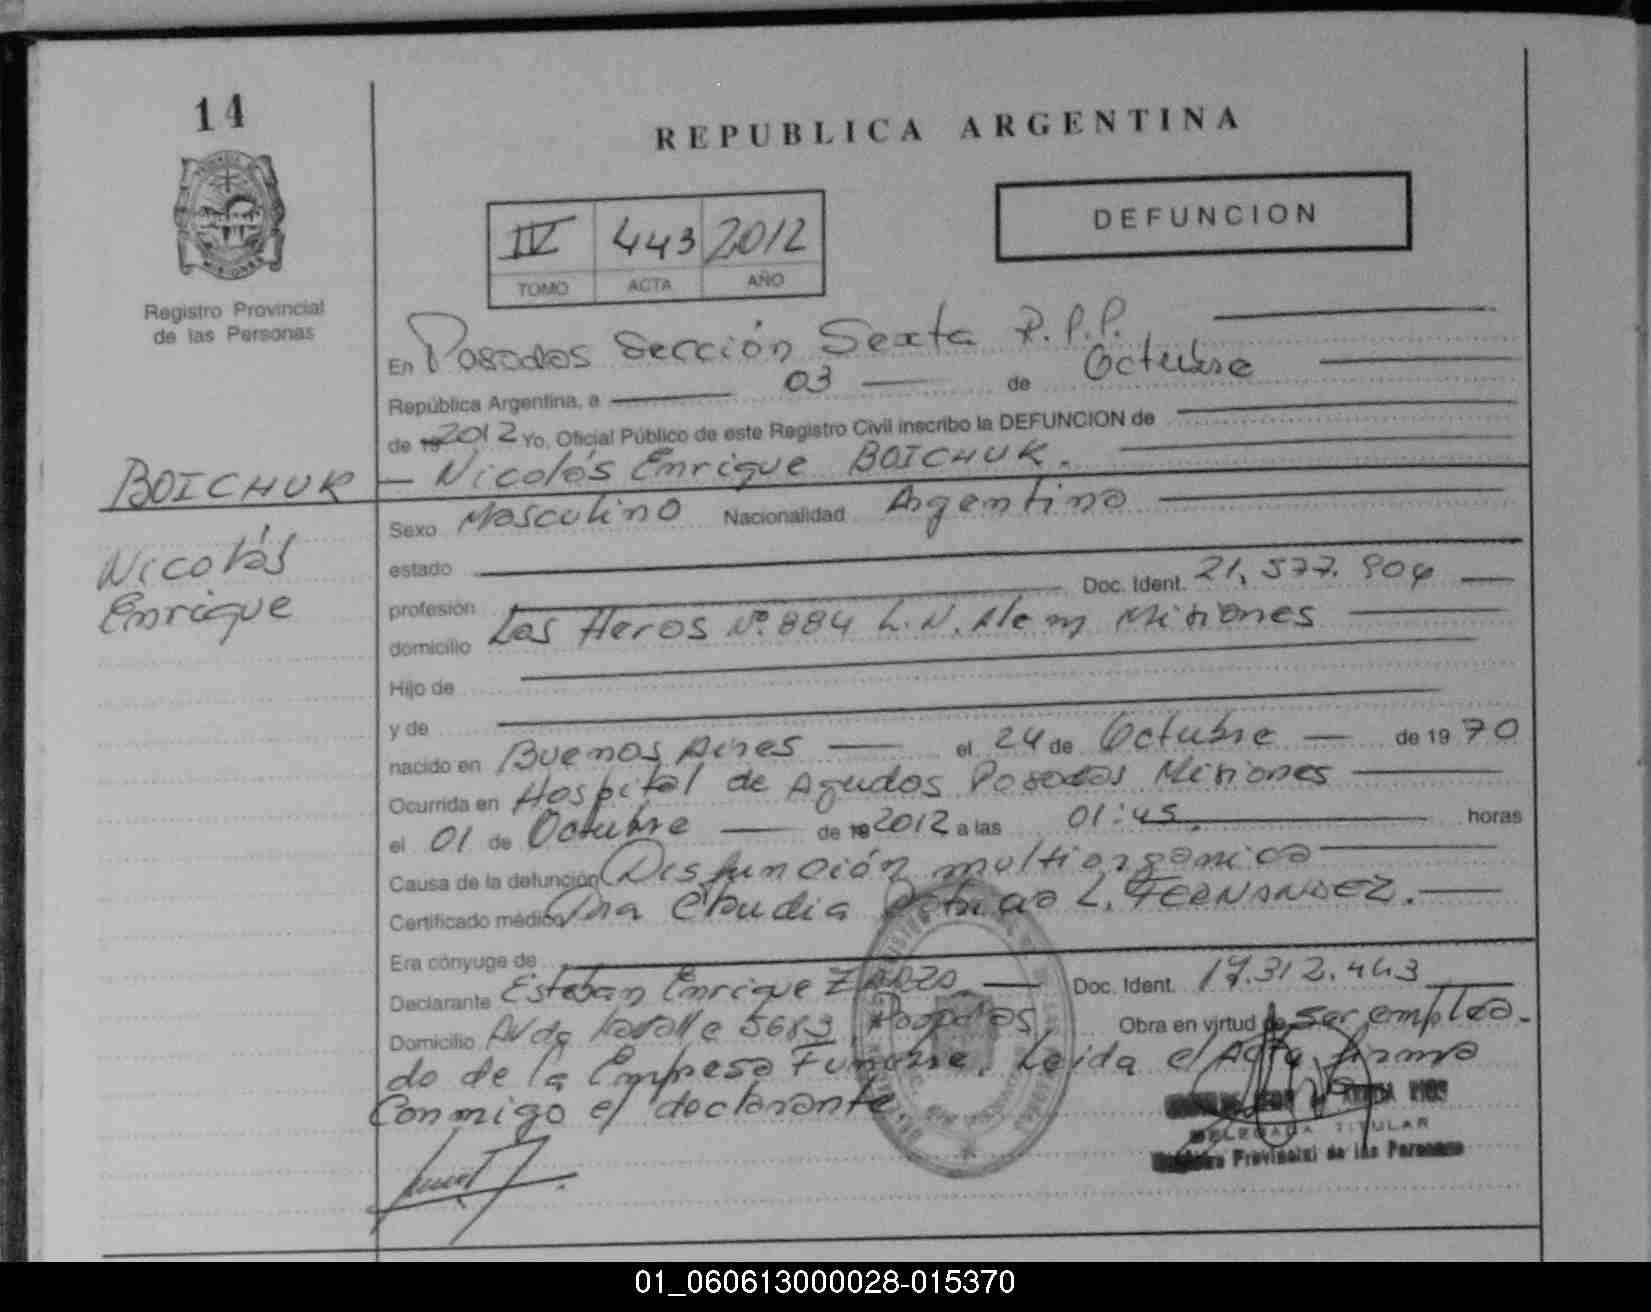 14
REPUBLICA ARGENTINA
DEFUNCION
IV 443 2012
TOMO ACTA AÑO
MISIONES
Registro Provincial
de las Personas
En Posadas Sección Sexta R.P.P.
República Argentina, a 03 de Octubre
de 19 2012 Yo, Oficial Público de este Registro Civil inscribo la DEFUNCION de
BOICHUK — Nicolás Enrique BOICHUK.
Nicolás
Enrique
Sexo Masculino Nacionalidad Argentina
estado
profesión Doc. Ident. 21.577.904
domicilio Las Heros Nº 884 L.N. Alem Misiones
Hijo de
y de
nacido en Buenos Aires — el 24 de Octubre — de 1970
Ocurrida en Hospital de Agudos Posadas Misiones
el 01 de Octubre — de 19 2012 a las 01:45. horas
Causa de la defunción Disfunción multiorganica
Certificado médico Dra Claudia L. FERNANDEZ.
Era cónyuge de
Declarante Esteban Enrique Doc. Ident. 17.312.443
Domicilio Avda 5683 Posadas Obra en virtud de ser emplea-
do de la Empresa Funebre. Leida el Acta, firma
Conmigo el declarante.
DELEGADA TITULAR
Registro Provincial de las Personas
01_060613000028-015370